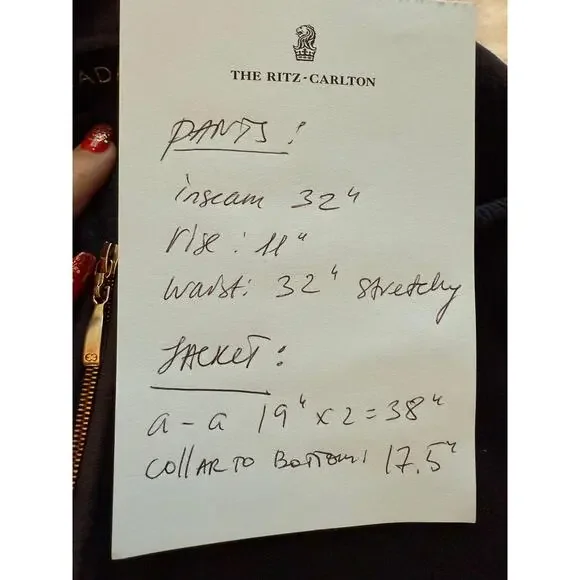 AD
THE RITZ-CARLTON
PANTS:
inseam 32"
rise: 11"
waist: 32" stretchy
JACKET:
a-a 19" x 2 = 38"
COLLAR TO BOTTOM: 17.5"